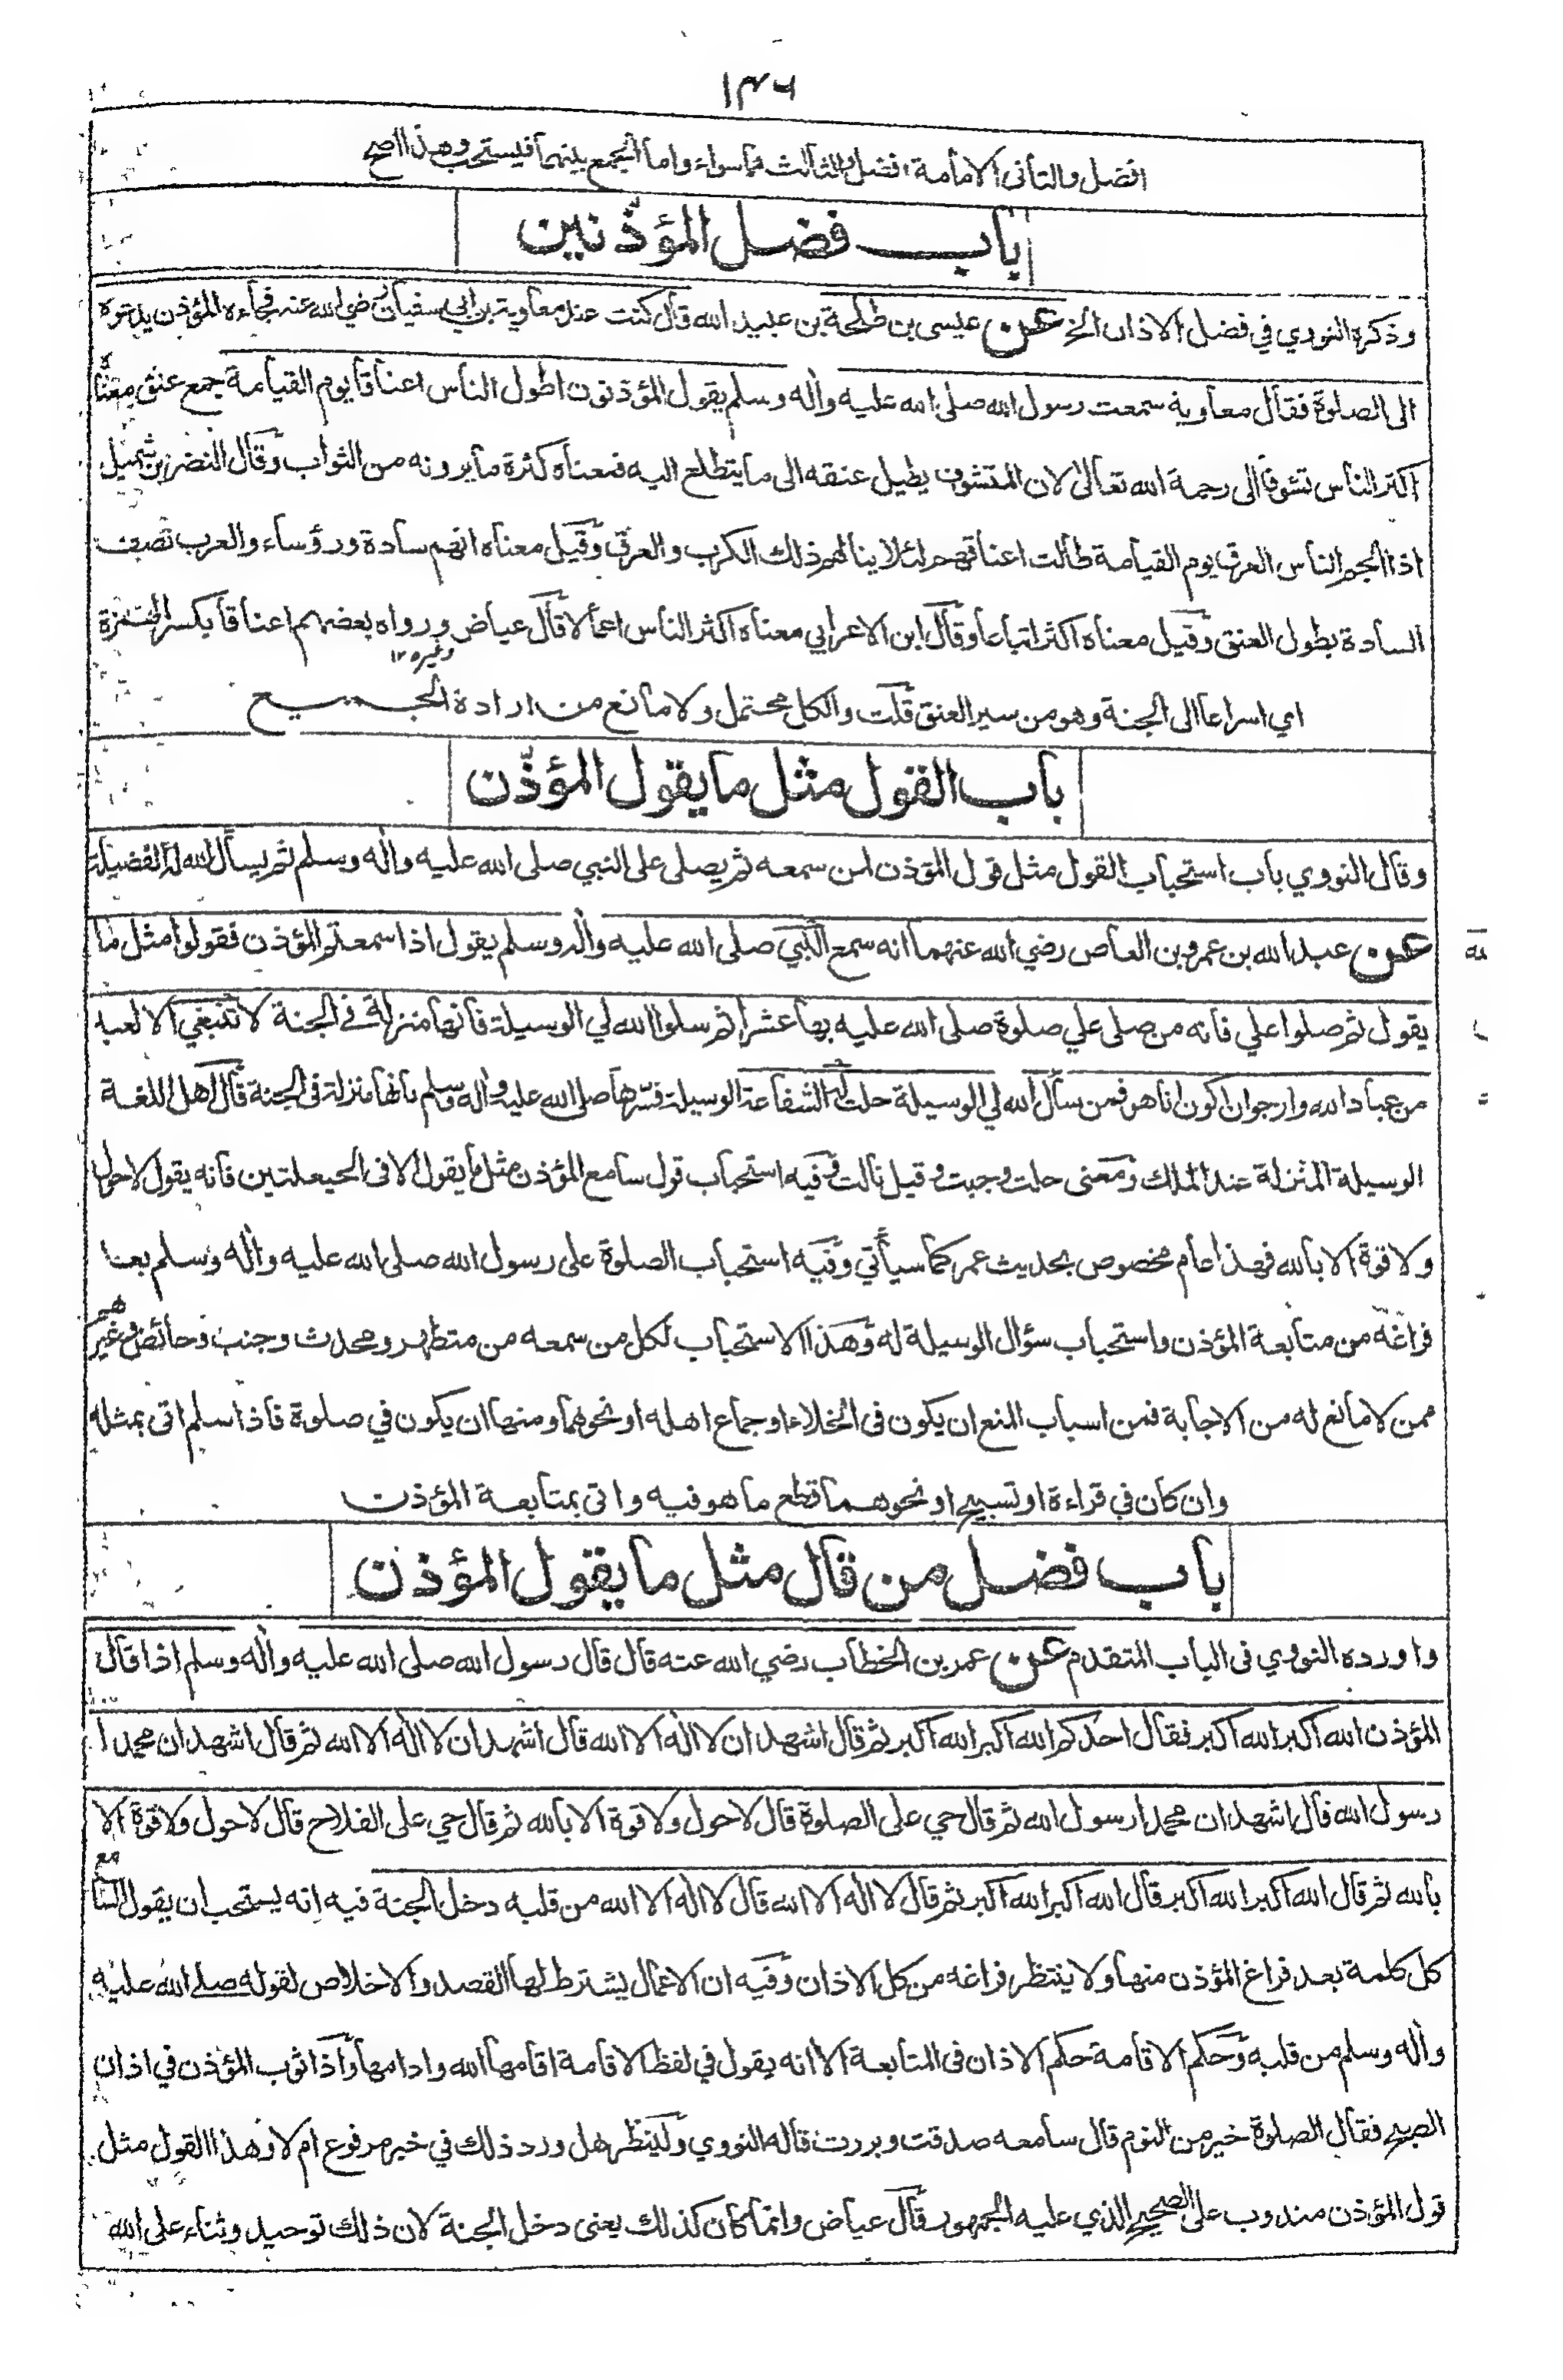 ١٣٦
افضل والثاني الامامة افضل والثالث هما سواء واما الجمع بينهما فيستحب وهذا اصح
باب فضل المؤذنين
وذكره النووي في فضل الاذان الخ عن عيسى بن طلحة بن عبيد الله قال كنت عند معاوية بن ابي سفيان رضي الله عنه فجاءه المؤذن يدعوه
الى الصلوة فقال معاوية سمعت رسول الله صلى الله عليه واٰله وسلم يقول المؤذنون اطول الناس اعناقا يوم القيامة جمع عنق معناه
اكثر الناس تشوفا الى رحمة الله تعالى لان المتشوف يطيل عنقه الى ما يتطلع اليه فمعناه كثرة ما يرونه من الثواب وقال النضر بن شميل
اذا الجم الناس العرق يوم القيامة طالت اعناقهم لئلا ينالهم ذلك الكرب والعرق وقيل معناه انهم سادة ورؤساء والعرب تصف
السادة بطول العنق وقيل معناه اكثر اتباعا وقال ابن الاعرابي معناه اكثر الناس اعمالا قال عياض وغيره ١٢ ورواه بعضهم اعناقا بكسر الهمزة
اي اسراعا الى الجنة وهو من سير العنق قلت والكل محتمل ولا مانع من ارادة الجميع
باب القول مثل ما يقول المؤذّن
وقال النووي باب استحباب القول مثل قول المؤذن لمن سمعه ثم يصلى على النبي صلى الله عليه واٰله وسلم ثم يسأل الله له الفضيلة
عن عبد الله بن عمرو بن العاص رضي الله عنهما انه سمع النبي صلى الله عليه واٰله وسلم يقول اذا سمعتم المؤذن فقولوا مثل ما
يقول ثم صلوا علي فانه من صلى علي صلوة صلى الله عليه بها عشرا ثم سلوا الله لي الوسيلة فانها منزلة في الجنة لا تنبغي الا لعبد
من عباد الله وارجوان اكون انا هو فمن سأل الله لي الوسيلة حلت له الشفاعة الوسيلة فسرها صلى الله عليه واٰله وسلم بانها منزلة في الجنة قال اهل اللغة
الوسيلة المنزلة عند الملك ومعنى حلت وجبت وقيل نالت وفيه استحباب قول سامع المؤذن مثل ما يقول الا في الحيعلتين فانه يقول لا حول
ولا قوة الا بالله فهذا عام مخصوص بحديث عمر كما سيأتي وفيه استحباب الصلوة على رسول الله صلى الله عليه واٰله وسلم بعد
فراغه من متابعة المؤذن واستحباب سؤال الوسيلة له وهذا الاستحباب لكل من سمعه من متطهر ومحدث وجنب وحائض وغيرهم
ممن لا مانع له من الاجابة فمن اسباب المنع ان يكون في الخلاء او جماع اهله او نحوهما ومنها ان يكون في صلوة فاذا سلم اتى بمثله
وان كان في قراءة او تسبيح او نحوهما قطع ما هو فيه واتى بمتابعة المؤذن
باب فضل من قال مثل ما يقول المؤذن
واورده النووي في الباب المتقدم عن عمر بن الخطاب رضي الله عنه قال قال رسول الله صلى الله عليه واٰله وسلم اذا قال
المؤذن الله اكبر الله اكبر فقال احدكم الله اكبر الله اكبر ثم قال اشهد ان لا اله الا الله قال اشهد ان لا اله الا الله ثم قال اشهد ان محمدا
رسول الله قال اشهد ان محمدا رسول الله ثم قال حي على الصلوة قال لا حول ولا قوة الا بالله ثم قال حي على الفلاح قال لا حول ولا قوة الا
بالله ثم قال الله اكبر الله اكبر قال الله اكبر الله اكبر ثم قال لا اله الا الله قال لا اله الا الله من قلبه دخل الجنة فيه انه يستحب ان يقول السامع
كل كلمة بعد فراغ المؤذن منها ولا ينتظر فراغه من كل الاذان وفيه ان الاعمال يشترط لها القصد والاخلاص لقوله صلى الله عليه
واٰله وسلم من قلبه وحكم الاقامة حكم الاذان في المتابعة الا انه يقول في لفظ الاقامة اقامها الله وادامها واذا ثوب المؤذن في اذان
الصبح فقال الصلوة خير من النوم قال سامعه صدقت وبررت قاله النووي ولينظر هل ورد ذلك في خبر مرفوع ام لا وهذا القول مثل
قول المؤذن مندوب على الصحيح الذي عليه الجمهور قال عياض وانما كان كذلك يعني دخل الجنة لان ذلك توحيد وثناء على الله